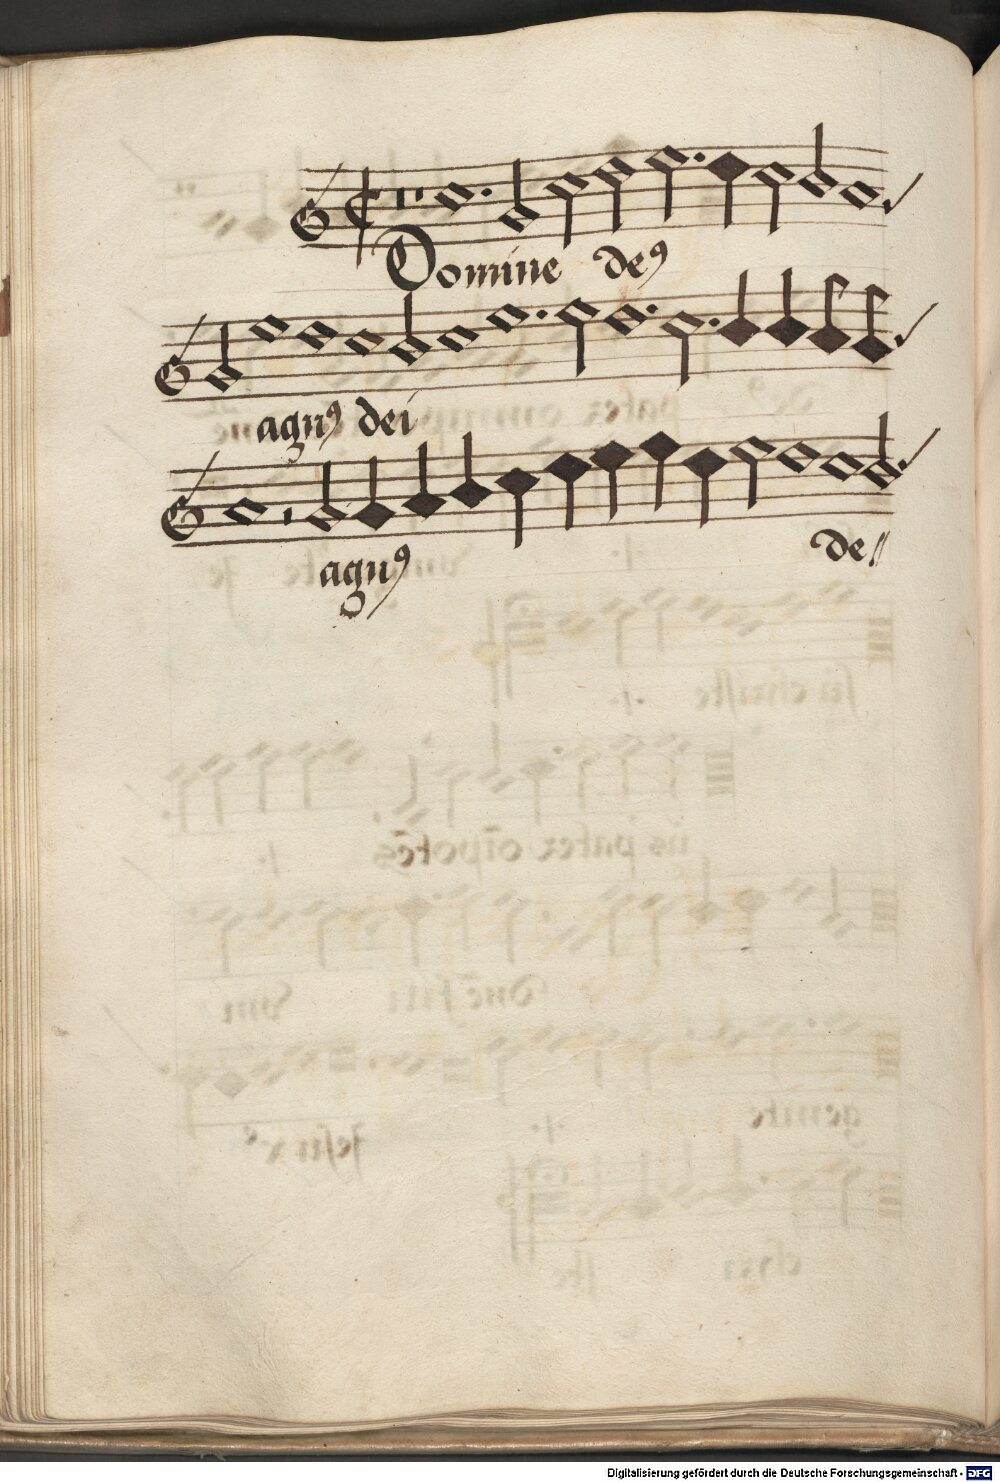 Domine deꝰ
agnꝰ dei
agnꝰ de//
Digitalisierung gefördert durch die Deutsche Forschungsgemeinschaft - DFG